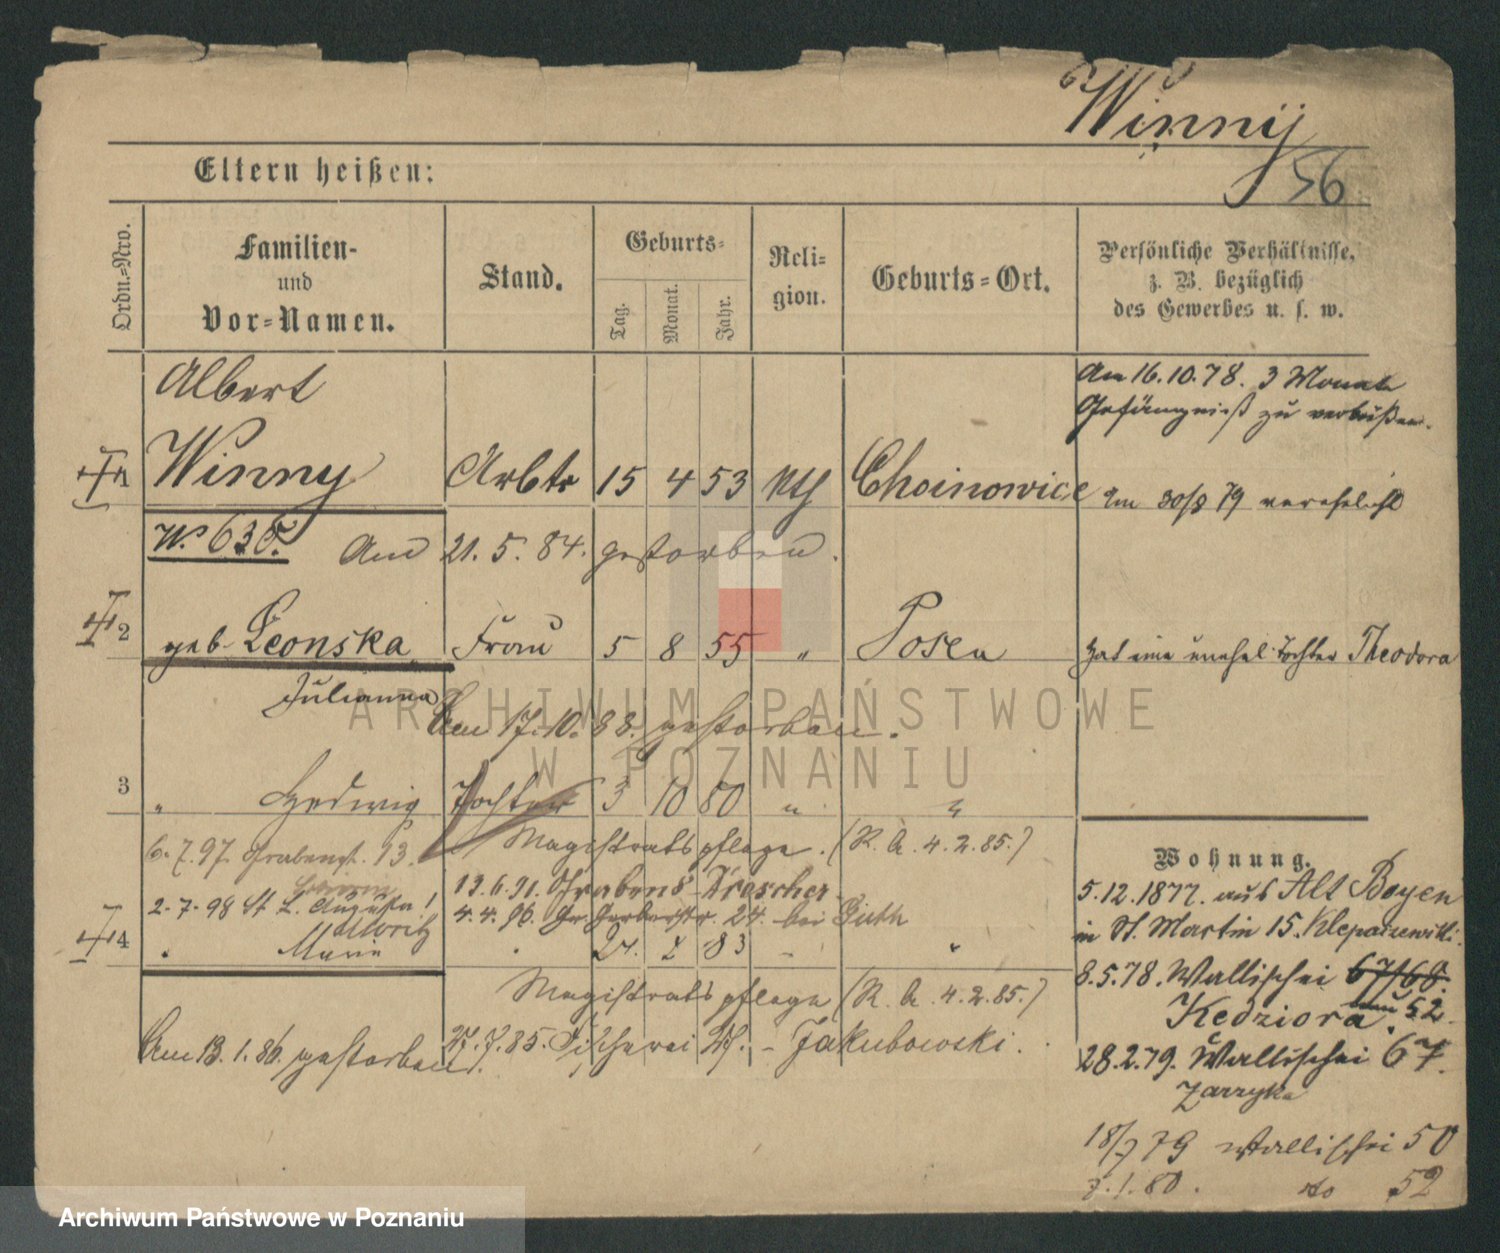 Winny
56
Eltern heißen:
Ordn.-Nro.
Familien-
und
Vor-Namen.
Stand.
Geburts-
Tag.
Monat.
Jahr.
Reli-
gion.
Geburts-Ort.
Persönliche Verhältnisse,
z. B. bezüglich
des Gewerbes u. s. w.
Albert
Winny Arbtr 15 4 53 kth Choinowice
Am 16.10.78. 3 Monate
Gefängniß zu verbüßen.
Am 30/8 79 verehelicht
Am 21. 5. 84. gestorben.
2 geb. Leonska Frau 5 8 55 " Posen
Hat eine unehel. Tochter Theodora
Julianna
Am 17.10.88. gestorben.
3 " Hedwig Tochter 3 10 80 " "
6.7.97. Grabenst. 13.
Magistratspflege. (R. A. 4.2.85.)
13.6.91. Grabens Drescher
2.7.98 St L. Augusta
4.4.96. Gr. Gerberstr. 24. bei Guth
Moritz
4 " Marie 24. 2 83 "
Magistratspflege (R. A. 4.2.85.)
Am 13.1.86. gestorben.
27.7.85. Fischerei 27. - Jakubowski.
Wohnung.
5.12.1877. aus Alt Boyen
in St. Martin 15.
8.5.78. Wallischei 67/68.
Kedziora. 52
28.2.79. Wallischei 67.
Zarzyka
18/7 79 Wallischei 50
7.1.80. do 52
ARCHIWUM PAŃSTWOWE
W POZNANIU
Archiwum Państwowe w Poznaniu